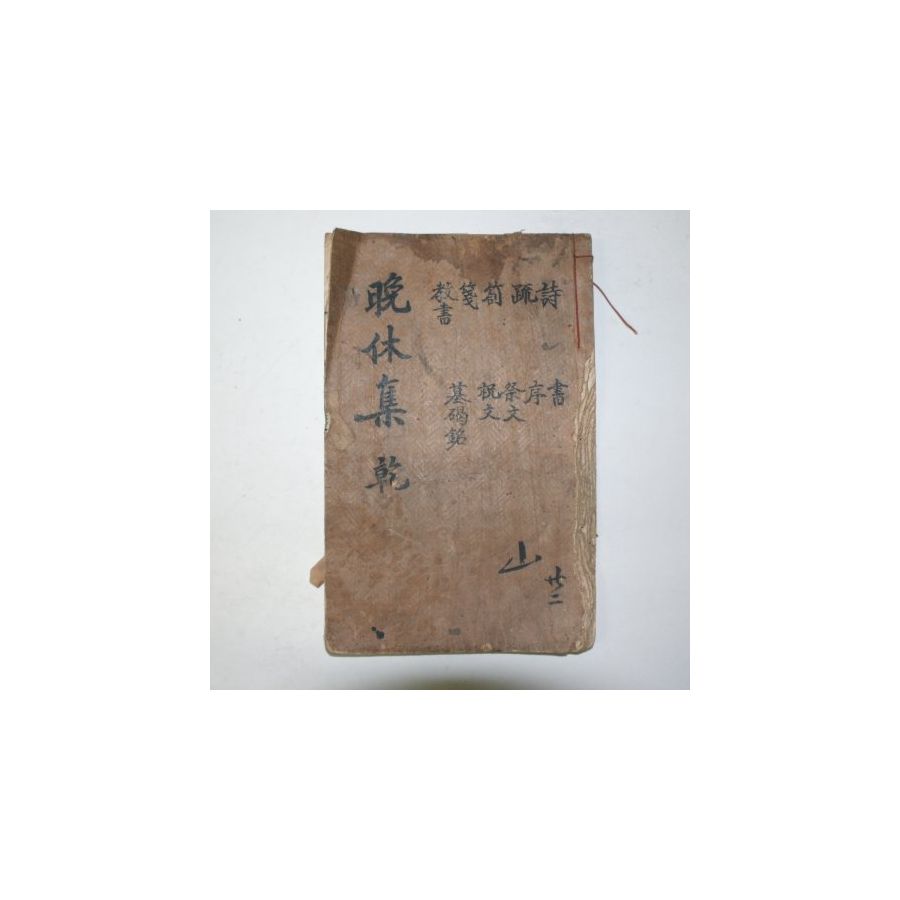 晚休集 乾
詩
疏
箚
箋
教書
書
序
祭文
祝文
墓碣銘
山
廿二